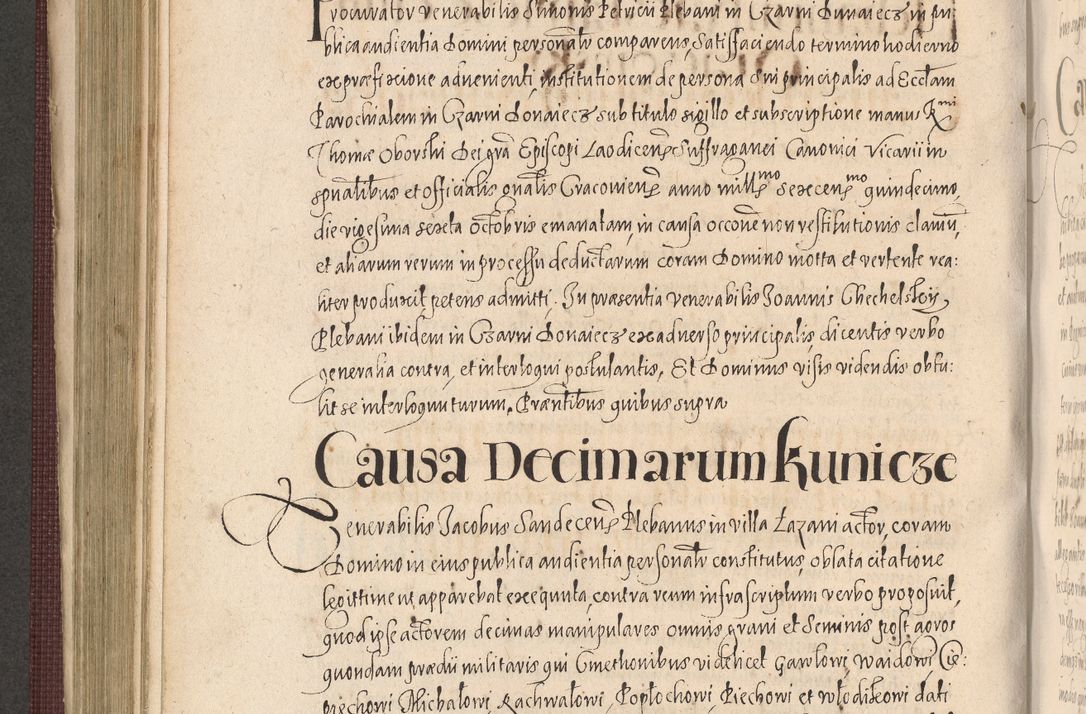 Procurator venerabilis Simonis Petricii Plebani in Czarni Dunaiecz in pu
blica audientia Domini personalr comparens, Satisfaciendo termino hodierno
ex praefixione advenienti, institutionem de persona Sui principalis ad Ecclam
Parochialem in Czarni Donaiecz sub titulo sigillo et subscriptione manus Rmi
Thomæ Oborski Dei gra Episcopi Laodicen Suffraganei Canonici Vicarii in
spualibus et Officialis gnalis Cracovien anno millmo sexcenmo quindecimo,
die vigesima sexta Octobris emanatam, in causa occone non restitutionis clamu,
et aliarum rerum in processu deductarum coram Domino motta et vertente rea:
liter produxit petens admitti. In præsentia venerabilis Joannis Chechelskij,
Plebani ibidem in Czarni Donaiecz ex adverso principalis, dicentis verbo
generalia contra, et interloqui postulantis, Et Dominus visis videndis obtu:
lit se interloquuturum. Præntibus quibus supra
Causa Decimarum Kunicze
Venerabilis Jacobus Sandecen Plebanus in villa Łazani actor, coram
Domino in eius publica audientia personalr constitutus, oblata citatione
legittime ut apparebat exequuta, contra reum infrascriptum verbo proposuit,
quod ipse actorem decimas manipulares omnis grani et Seminis post agros
quondam prædii militaris qui Cmethonibus videlicet Gawłowi, Waidowi, Cie:
piechowi Michałowi, Rachwałowi, Popłochowi, Piechowi et Włodikowi dati